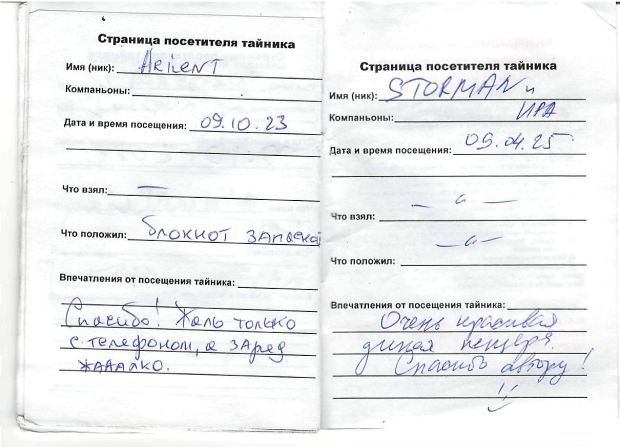 Страница посетителя тайника
Имя (ник): Ariient
Компаньоны:
Дата и время посещения: 09.10.23
Что взял: —
Что положил: блокнот запасной
Впечатления от посещения тайника:
Спасибо! Жаль только
с телефоном, а заряд
жааалко.
Страница посетителя тайника
Имя (ник): STORMAN и
Компаньоны: ИРА
Дата и время посещения: 09.04.25
Что взял: — " —
Что положил: — " —
Впечатления от посещения тайника:
Очень красивая
дикая пещера.
Спасибо автору!